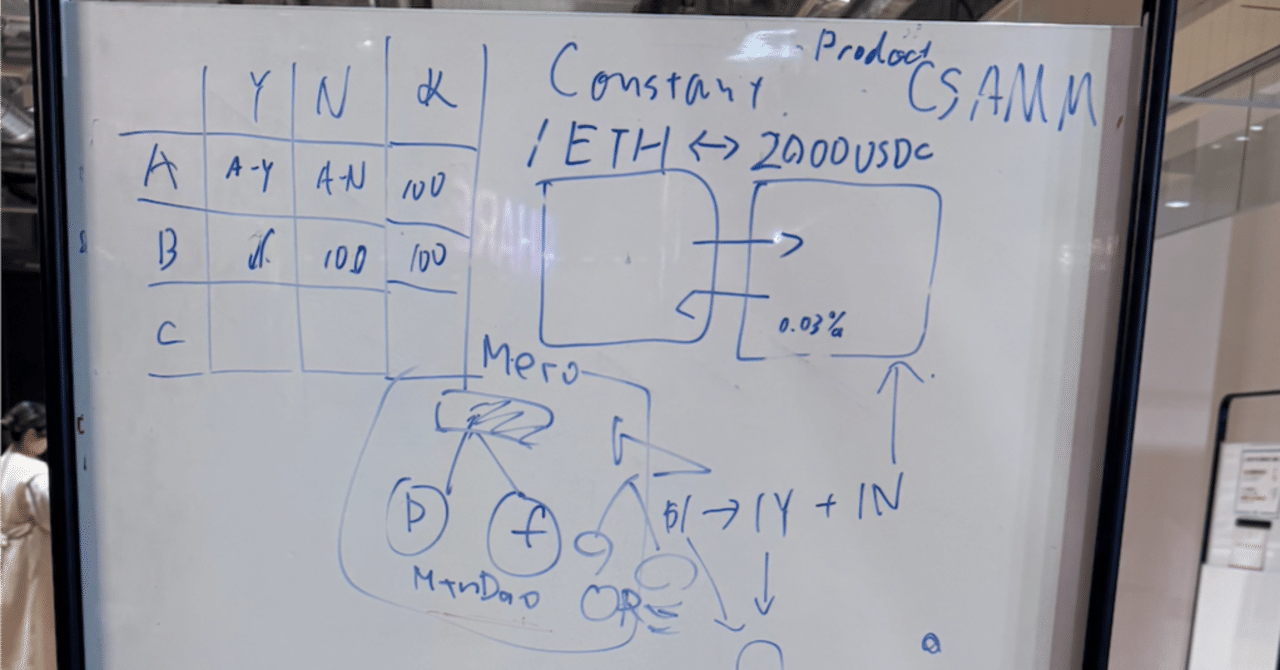 Y N K
A A-Y A-N 100
B 100 100
C
Constant Product CSAMM
1 ETH ↔ 2000USDC
0.03%
Mero
P f
MtnDao
ORE
$1 → 1Y + 1N